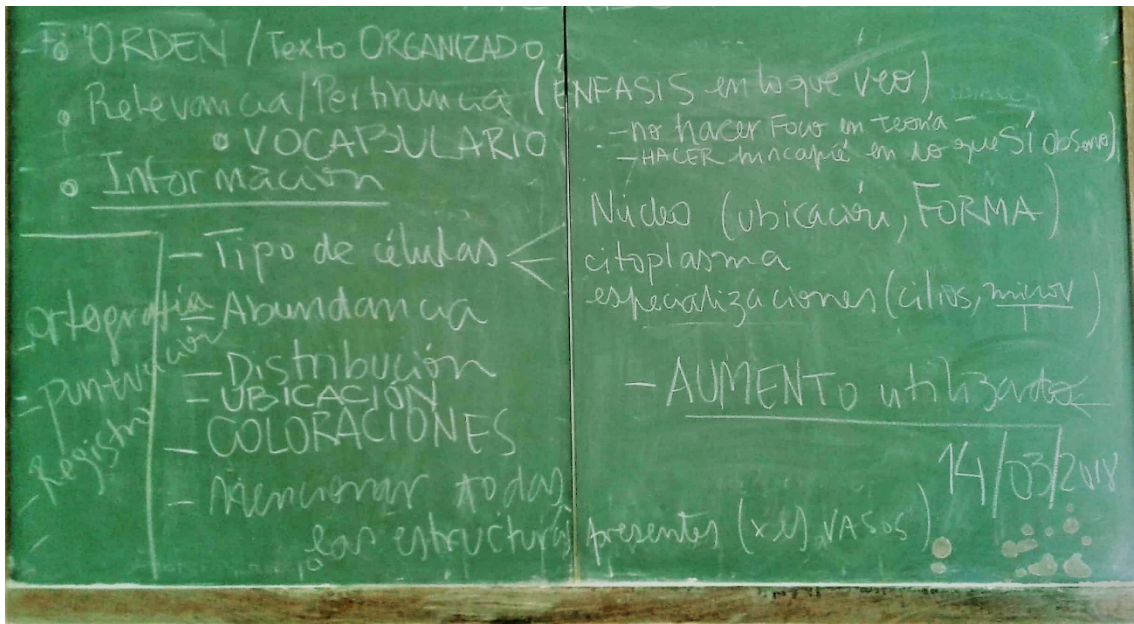 ORDEN / Texto ORGANIZADO
• Relevancia/Pertinencia (ÉNFASIS en lo que veo)
- no hacer Foco en teoría -
- HACER hincapié en lo que SÍ observo)
• VOCABULARIO
• Información
- Tipo de células <
Núcleo (ubicación, FORMA)
citoplasma
especializaciones (cilios, microv)
- Abundancia
- Distribución
- UBICACIÓN
- COLORACIONES
- Mencionar todas
las estructuras presentes (x ej, VASOS)
- AUMENTO utilizado
- ortografía
- puntuación
- Registro
14/03/2018